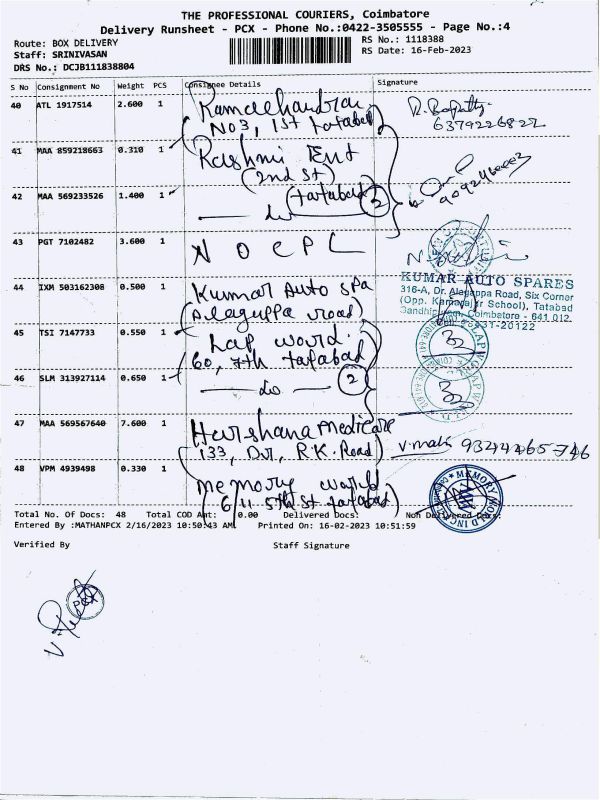 THE PROFESSIONAL COURIERS, Coimbatore
Delivery Runsheet - PCX - Phone No.:0422-3505555 - Page No.:4
Route: BOX DELIVERY
RS No.: 1118388
Staff: SRINIVASAN
RS Date: 16-Feb-2023
DRS No.: DCJB111838804
S No Consignment No Weight PCS Consignee Details Signature
40 ATL 1917514 2.600 1 Ramachandran
No 3, 1st tatabad
6379226822
41 MAA 859218663 0.310 1 Rashmi Ent
(2nd St)
42 MAA 569233526 1.400 1 (tatabad) 2
do
43 PGT 7102482 3.600 1 N O C P L
44 IXM 503162308 0.500 1 Kumar Auto Spa
(Alaguppa road)
KUMAR AUTO SPARES
316-A, Dr. Alagappa Road, Six Corner
(Opp. Kamarajr School), Tatabad
Coimbatore - 641 012.
45 TSI 7147733 0.550 1 Lap world.
60, 7th tatabad
46 SLM 313927114 0.650 1 do 2
47 MAA 569567640 7.600 1 Harshana Medicare
133, Dvr, R.K. Road)
V. mals 9344465746
48 VPM 4939498 0.330 1 memory world
6/11 5th St tatabad)
MEMORY WORLD INC
Total No. Of Docs: 48 Total COD Amt: 0.00 Delivered Docs: Non Delivered Docs:
Entered By :MATHANPCX 2/16/2023 10:50:43 AM Printed On: 16-02-2023 10:51:59
Verified By Staff Signature
PCX